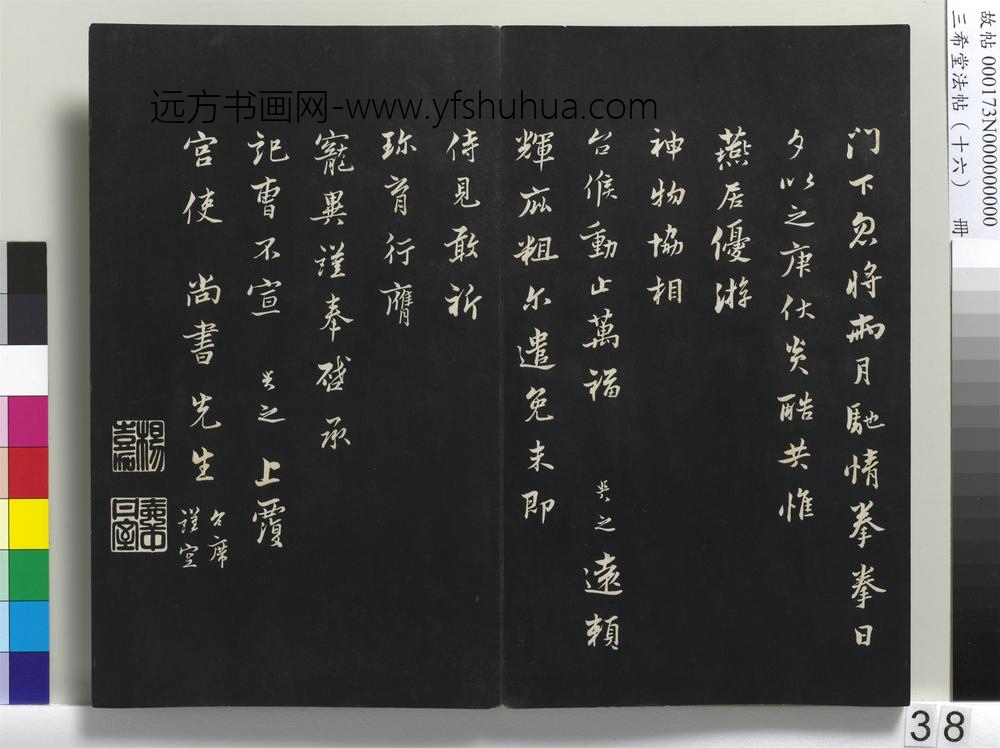 门下忽将兩月馳情拳拳日
夕以之庚伏炎酷共惟
燕居優游
神物協相
台候動止萬福 㠯之遠賴
輝庇粗尔遣免未即
侍見敢祈
珎育行膺
寵異謹奉啓承
記曹不宣 㠯之上覆
宫使 尚書先生
台席
謹空
远方书画网-www.yfshuhua.com
故帖 000173N000000000
三希堂法帖（十六） 冊
38